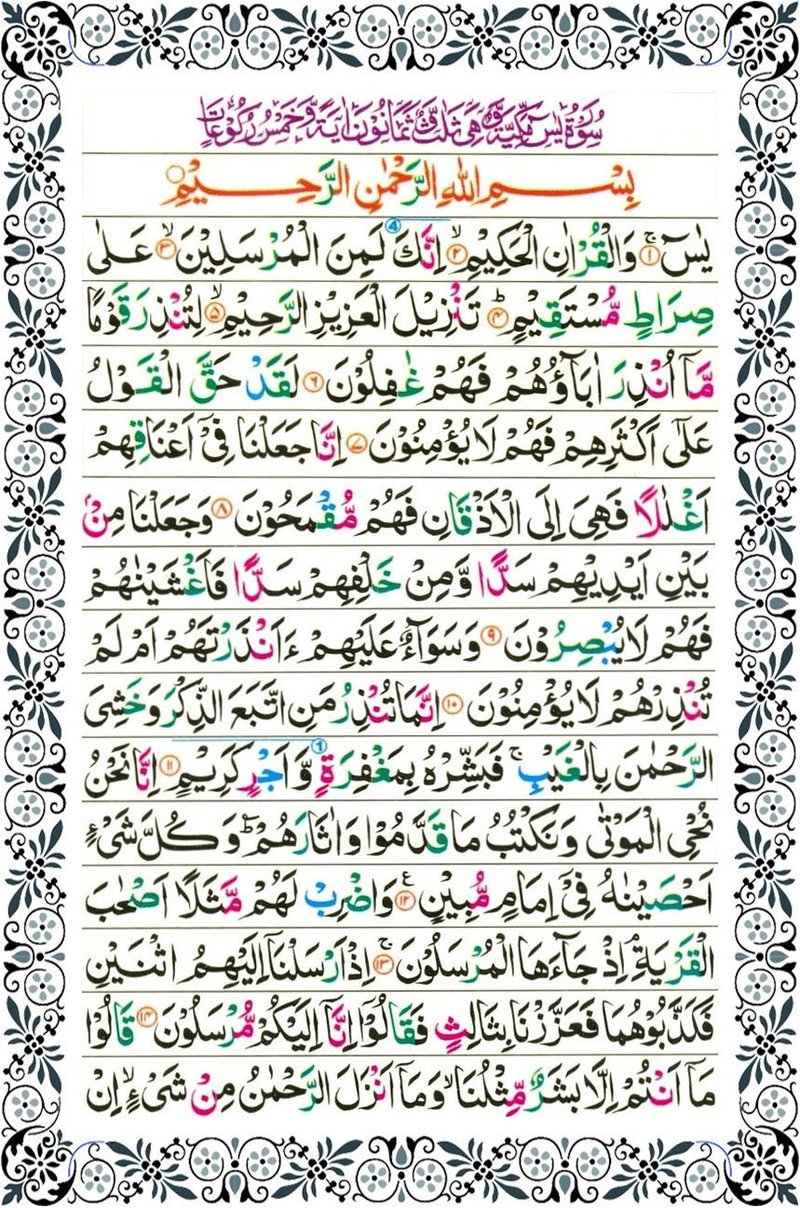 سُوْرَةُ يٰسٓ مَكِّيَّةٌ وَّهِيَ ثَلٰثٌ وَّثَمَانُوْنَ اٰيَةً وَّخَمْسُ رُكُوْعَاتٍ
بِسْمِ اللّٰهِ الرَّحْمٰنِ الرَّحِيْمِ
يٰسٓ ۚ ﴿۱﴾ وَالْقُرْاٰنِ الْحَكِيْمِ ۙ ﴿۲﴾ اِنَّكَ لَمِنَ الْمُرْسَلِيْنَ ۙ ﴿۳﴾ عَلٰى
صِرَاطٍ مُّسْتَقِيْمٍ ؕ ﴿۴﴾ تَنْزِيْلَ الْعَزِيْزِ الرَّحِيْمِ ۙ ﴿۵﴾ لِتُنْذِرَ قَوْمًا
مَّاۤ اُنْذِرَ اٰبَآؤُهُمْ فَهُمْ غٰفِلُوْنَ ﴿۶﴾ لَقَدْ حَقَّ الْقَوْلُ
عَلٰۤى اَكْثَرِهِمْ فَهُمْ لَا يُؤْمِنُوْنَ ﴿۷﴾ اِنَّا جَعَلْنَا فِيْۤ اَعْنَاقِهِمْ
اَغْلٰلًا فَهِيَ اِلَى الْاَذْقَانِ فَهُمْ مُّقْمَحُوْنَ ﴿۸﴾ وَجَعَلْنَا مِنْۢ
بَيْنِ اَيْدِيْهِمْ سَدًّا وَّمِنْ خَلْفِهِمْ سَدًّا فَاَغْشَيْنٰهُمْ
فَهُمْ لَا يُبْصِرُوْنَ ﴿۹﴾ وَسَوَآءٌ عَلَيْهِمْ ءَاَنْذَرْتَهُمْ اَمْ لَمْ
تُنْذِرْهُمْ لَا يُؤْمِنُوْنَ ﴿۱۰﴾ اِنَّمَا تُنْذِرُ مَنِ اتَّبَعَ الذِّكْرَ وَخَشِيَ
الرَّحْمٰنَ بِالْغَيْبِ ۚ فَبَشِّرْهُ بِمَغْفِرَةٍ وَّاَجْرٍ كَرِيْمٍ ﴿۱۱﴾ اِنَّا نَحْنُ
نُحْيِ الْمَوْتٰى وَنَكْتُبُ مَا قَدَّمُوْا وَاٰثَارَهُمْ ؕ وَكُلَّ شَيْءٍ
اَحْصَيْنٰهُ فِيْۤ اِمَامٍ مُّبِيْنٍ ﴿۱۲﴾ ع وَاضْرِبْ لَهُمْ مَّثَلًا اَصْحٰبَ
الْقَرْيَةِ ۘ اِذْ جَآءَهَا الْمُرْسَلُوْنَ ۚ ﴿۱۳﴾ اِذْ اَرْسَلْنَاۤ اِلَيْهِمُ اثْنَيْنِ
فَكَذَّبُوْهُمَا فَعَزَّزْنَا بِثَالِثٍ فَقَالُوْۤا اِنَّاۤ اِلَيْكُمْ مُّرْسَلُوْنَ ﴿۱۴﴾ قَالُوْا
مَاۤ اَنْتُمْ اِلَّا بَشَرٌ مِّثْلُنَا ۙ وَمَاۤ اَنْزَلَ الرَّحْمٰنُ مِنْ شَيْءٍ ۙ اِنْ